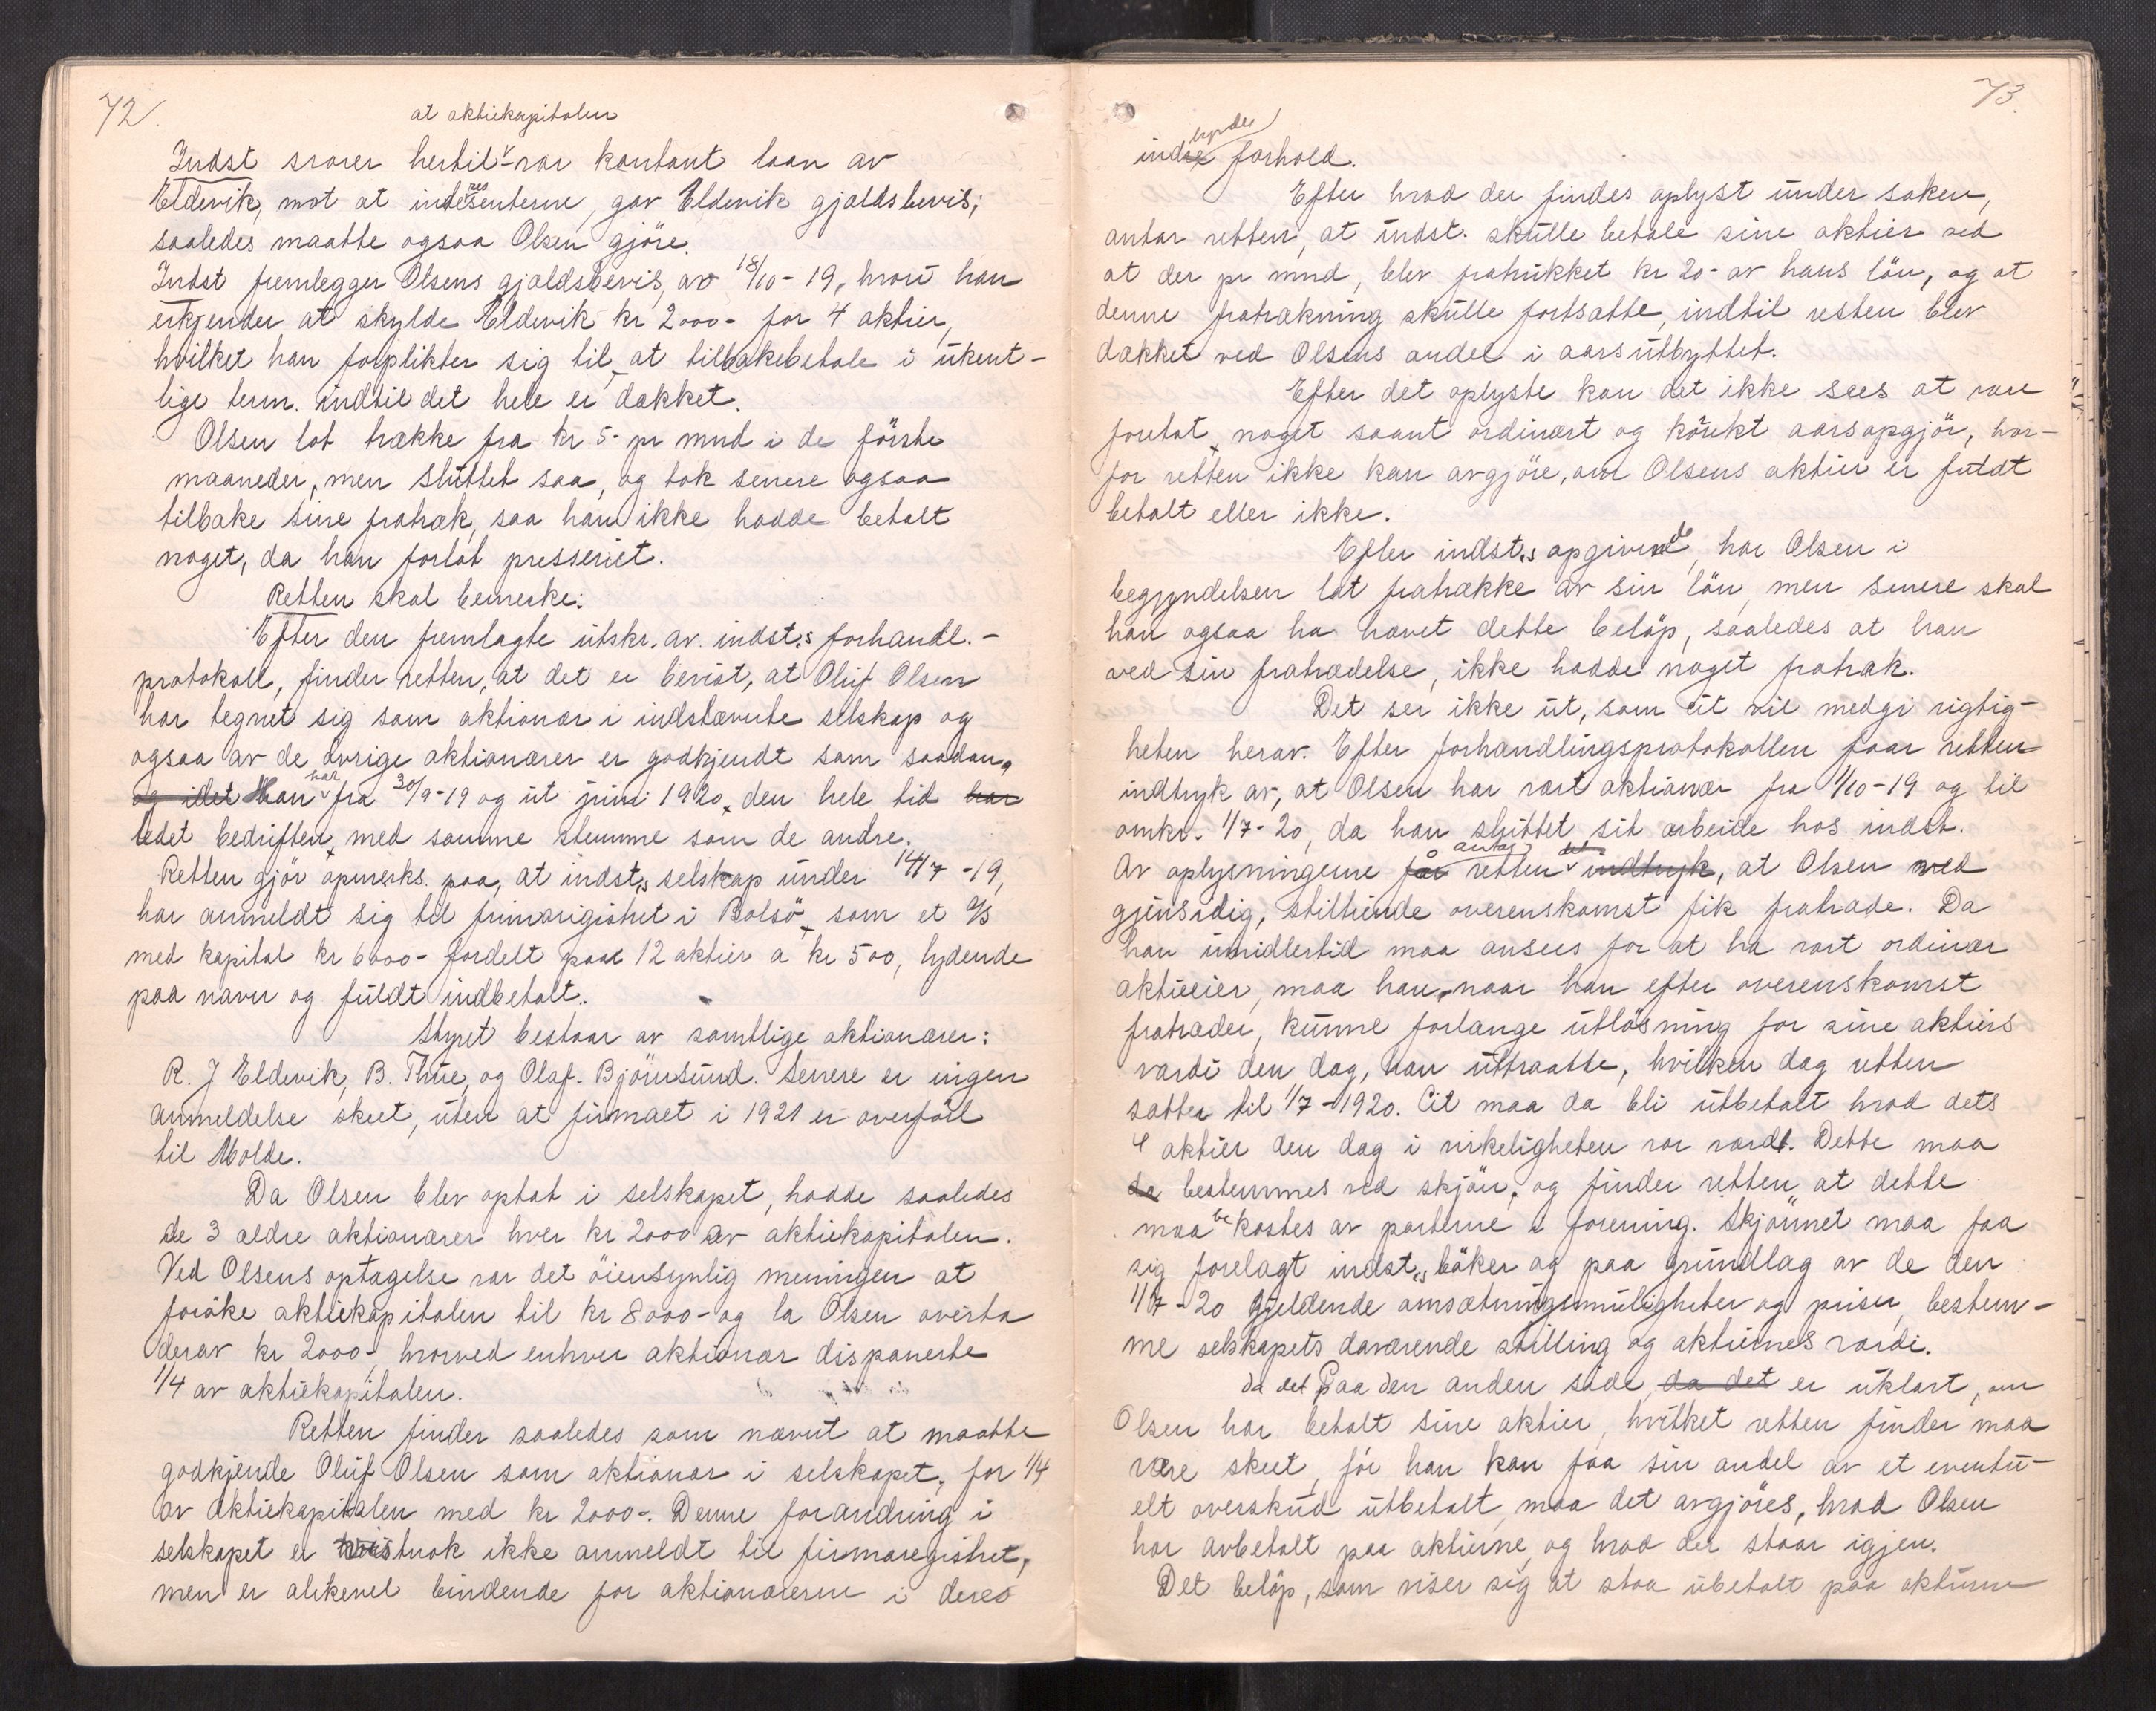 72.
at aktiekapitalen
Indst svarer hertil var kontant laan av
Eldevik, mot at interessenterne, gav Eldevik gjældsbevis;
saaledes maatte ogsaa Olsen gjöre.
Indst fremlegger Olsens gjældsbevis, av 18/10-19, hvori han
erkjender at skylde Eldevik kr 2000- for 4 aktier,
hvilket han forplikter sig til, at tilbakebetale i ukent-
lige term. indtil det hele er dækket.
Olsen lot trække fra kr 5- pr mnd i de förste
maaneder, men sluttet saa, og tok senere ogsaa
tilbake sine fratræk, saa han ikke hadde betalt
noget, da han forlot presseriet.
Retten skal bemerke:
Efter den fremlagte utskr. av. indst.s forhandl.-
protokoll, finder retten, at det er bevist, at Oluf Olsen
har tegnet sig som aktionær i indstævnte selskap og
ogsaa av de övrige aktionærer er godkjendt som saadan,
og idet Han har fra 30/9-19 og ut juni 1920, den hele tid har
ledet bedriften, med samme stemme som de andre.
Retten gjör opmerks. paa, at indst.s selskap under 14/7-19,
har anmeldt sig til firmarigistret i Bolsö, som et A/S
med kapital kr 6000- fordelt paa 12 aktier a kr 500, lydende
paa navn og fuldt indbetalt.
Styret bestaar av samtlige aktionærer:
R. J Eldevik, B. Thue, og Olaf. Björnsund. Senere er ingen
anmeldelse skeet, uten at firmaet i 1921 er overfört
til Molde.
Da Olsen blev optat i selskapet, hadde saaledes
de 3 ældre aktionærer hver kr 2000 av aktiekapitalen.
Ved Olsens optagelse var det öiensynlig meningen at
foröke aktiekapitalen til kr 8000- og la Olsen overta
derav kr 2000-, hvorved enhver aktionær disponerte
1/4 av aktiekapitalen.
Retten finder saaledes som nævnt at maatte
godkjende Oluf Olsen som aktionær i selskapet, for 1/4
av aktiekapitalen med kr 2000-. Denne forandring i
selskapet er nok ikke anmeldt til firmaregistret,
men er alikevel bindende for aktionærerne i deres
73.
indbyrdes forhold.
Efter hvad der findes oplyst under saken,
antar retten, at indst. skulle betale sine aktier ved
at der pr mnd, blev fratrukket kr 20- av hans lön, og at
denne fratrækning skulle fortsætte, indtil resten blev
dækket ved Olsens andel i aarsutbyttet.
Efter det oplyste kan det ikke sees at være
foretat, noget saant ordinært og korekt aarsopgjör, hvor-
for retten ikke kan avgjöre, om Olsens aktier er fuldt
betalt eller ikke.
Efter indst.s opgivende, har Olsen i
begyndelsen lat fratrække av sin lön, men senere skal
han ogsaa ha hævet dette belöp, saaledes at han
ved sin fratrædelse, ikke hadde noget fratræk.
Det ser ikke ut, som cit vil medgi rigtig-
heten herav. Efter forhandlingsprotokollen faar retten
indtryk av, at Olsen har vært aktionær fra 1/10-19 og til
omkr. 1/7-20, da han sluttet sit arbeide hos indst.
Av oplysningerne får antar retten det indtryk, at Olsen ved
gjensidig, stiltiende overenskomst fik fratræde. Da
han imidlertid maa ansees for at ha vært ordinær
aktieeier, maa han, naar han efter overenskomst
fratræder, kunne forlange utlösning for sine aktiers
værdi den dag, han uttraatte, hvilken dag retten
sætter til 1/7-1920. Cit maa da bli utbetalt hvad dets
4 aktier den dag i virkeligheten var værdt. Dette maa
da bestemmes ved skjön, og finder retten at dette
maa bekostes av parterne i forening. Skjönnet maa faa
sig forelagt indst.s böker og paa grundlag av de den
1/7-20 gjeldende omsætningsmuligheter og priser, bestem-
me selskapets daværende stilling og aktiernes værdi.
da det Paa den anden side, da det er uklart, om
Olsen har betalt sine aktier, hvilket retten finder maa
være skeet, för han kan faa sin andel av et eventu-
elt overskud utbetalt, maa det avgjöres, hvad Olsen
har avbetalt paa aktierne, og hvad der staar igjen.
Det belöp, som viser sig at staa ubetalt paa aktierne